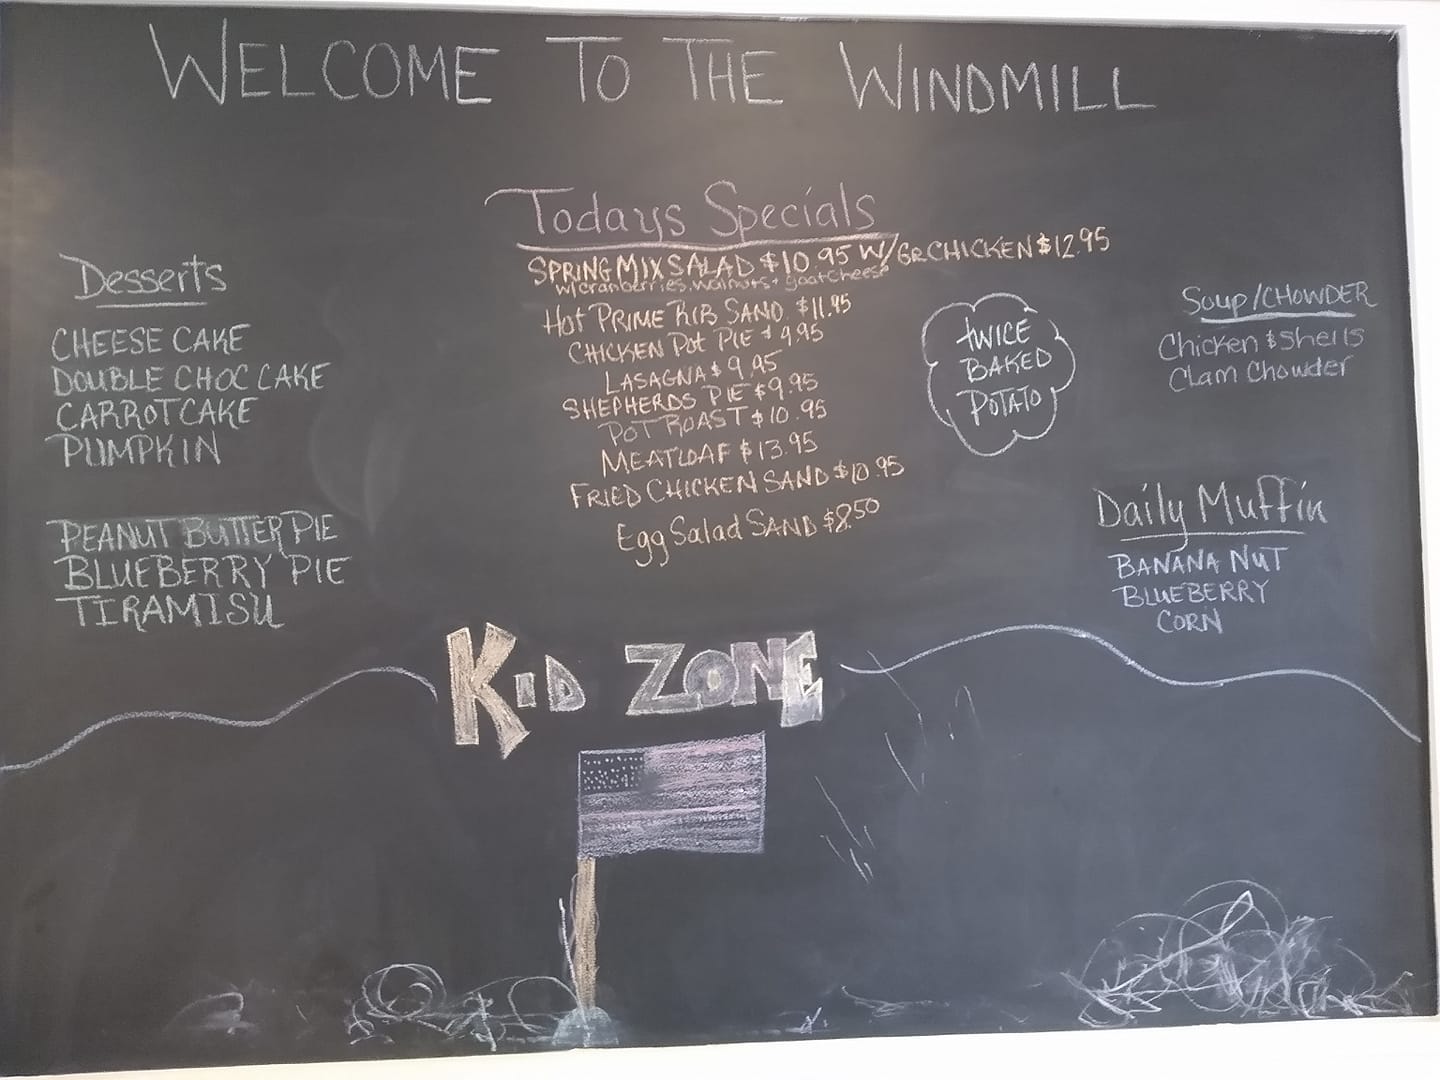 WELCOME TO THE WINDMILL
Todays Specials
SPRING MIX SALAD $10.95 W/Gr CHICKEN $12.95
w/cranberries, walnuts + goat cheese
Hot PRIME RIB SAND. $11.95
CHICKEN Pot PIE $9.95
LASAGNA $9.95
SHEPHERDS PIE $9.95
POT ROAST $10.95
MEATLOAF $13.95
FRIED CHICKEN SAND $10.95
Egg Salad SAND $8.50
Desserts
CHEESE CAKE
DOUBLE CHOC CAKE
CARROT CAKE
PUMPKIN
PEANUT BUTTER PIE
BLUEBERRY PIE
TIRAMISU
TWICE
BAKED
POTATO
Soup/CHOWDER
Chicken & Shells
Clam Chowder
Daily Muffin
BANANA NUT
BLUEBERRY
CORN
KID ZONE